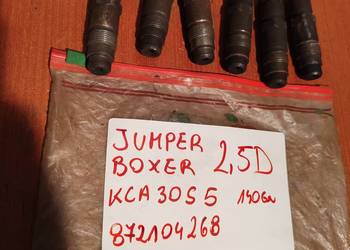 JUMPER
BOXER 2,5D
KCA30S5 140
872104268